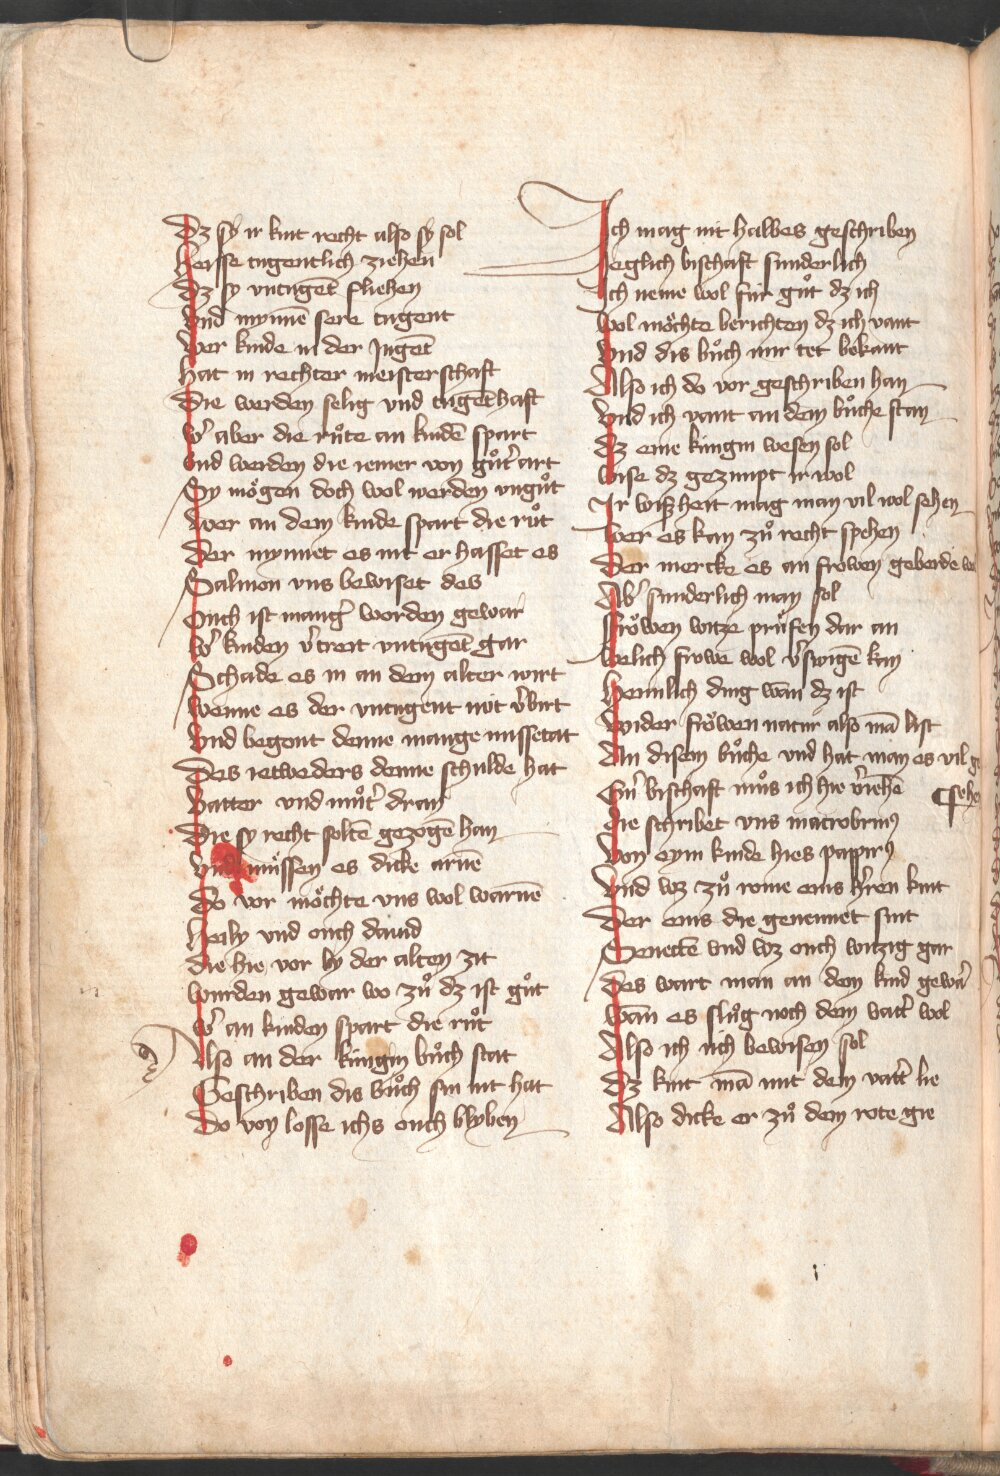 Dz sy ir kint recht also sy sol
Heisse tugentlich ziehen
Dz sy vntugēt fliehen
Vnd mynne sere tugent
Wer kinde in der Jugēt
Hat in rechter meisterschaft
Die werden selig vnd tugēthaft
W͛ aber die ruͦte an kindē spart
Vnd werden die iemer von guͦt͛ art
Sy moͤgen doch wol werden vnguͦt
Wer an dem kinde spart die ruͦt
Der mynnet es nit er hasset es
Salmon vns bewiset des
Ouch ist mang͛ worden gewar
W͛ kinden v͛treit vntugēt gar
Schade es in an dem alter wirt
Wenne es der vntugent nit v͛birt
Vnd begont denne mange missetat
Des ietweders denne schulde hat
Vatter vnd muͦt͛ dran
Die sy recht soltē gezogē han
Vnd muͤssen es dicke arnē
Do vor moͤchte vns wol warnē
Hely vnd ouch dauid
Die hie vor by der alten zit
Wurden gewar wo zuͦ dz ist guͦt
W͛ an kinden spart die ruͦt
Also an der kúngin buͦch stat
Geschriben dis buͦch sin nit hat
Do von losse ichs ouch blyben
Ich mag nit halbes geschriben
Jeglich bischaft sunderlich
Ich neme wol fúr guͦt dz ich
Wol moͤchte berichten dz ich vant
Vnd dis buͦch mir tet bekant
Also ich do vor geschriben han
Vnd ich vant an dem buͦche stan
Dz eine kúngin wesen sol
Wise dz gezimpt ir wol
Ir wißheit mag man vil wol sehen
Wer es kan zuͦ recht spehen
Der mercke es an frowen geberde wol
Ab͛ sunderlich man sol
Froͤwen witze pruͤfen dar an
Welich frowe wol v͛swigē kan
Heimlich ding wān dz ist
Wider froͤwen natur also mā list
An disem buͦche vnd hat man es vil ge
Ein͛ bischaft muͦs ich hie v͛iehē
sehē
Die schribet vns macrobius
Von eym kinde hies papirꝰ
Vnd wz zuͦ rome eins h͛ren kint
Der eins die genennet sint
Senectē vnd wz ouch witzig gar
Des wart man an dem kind gewar
Wān es sluͦg noch dem vatt͛ wol
Also ich úch bewisen sol
Dz kint mā mit dem vatt͛ lie
Also dicke er zuͦ dem rote gie